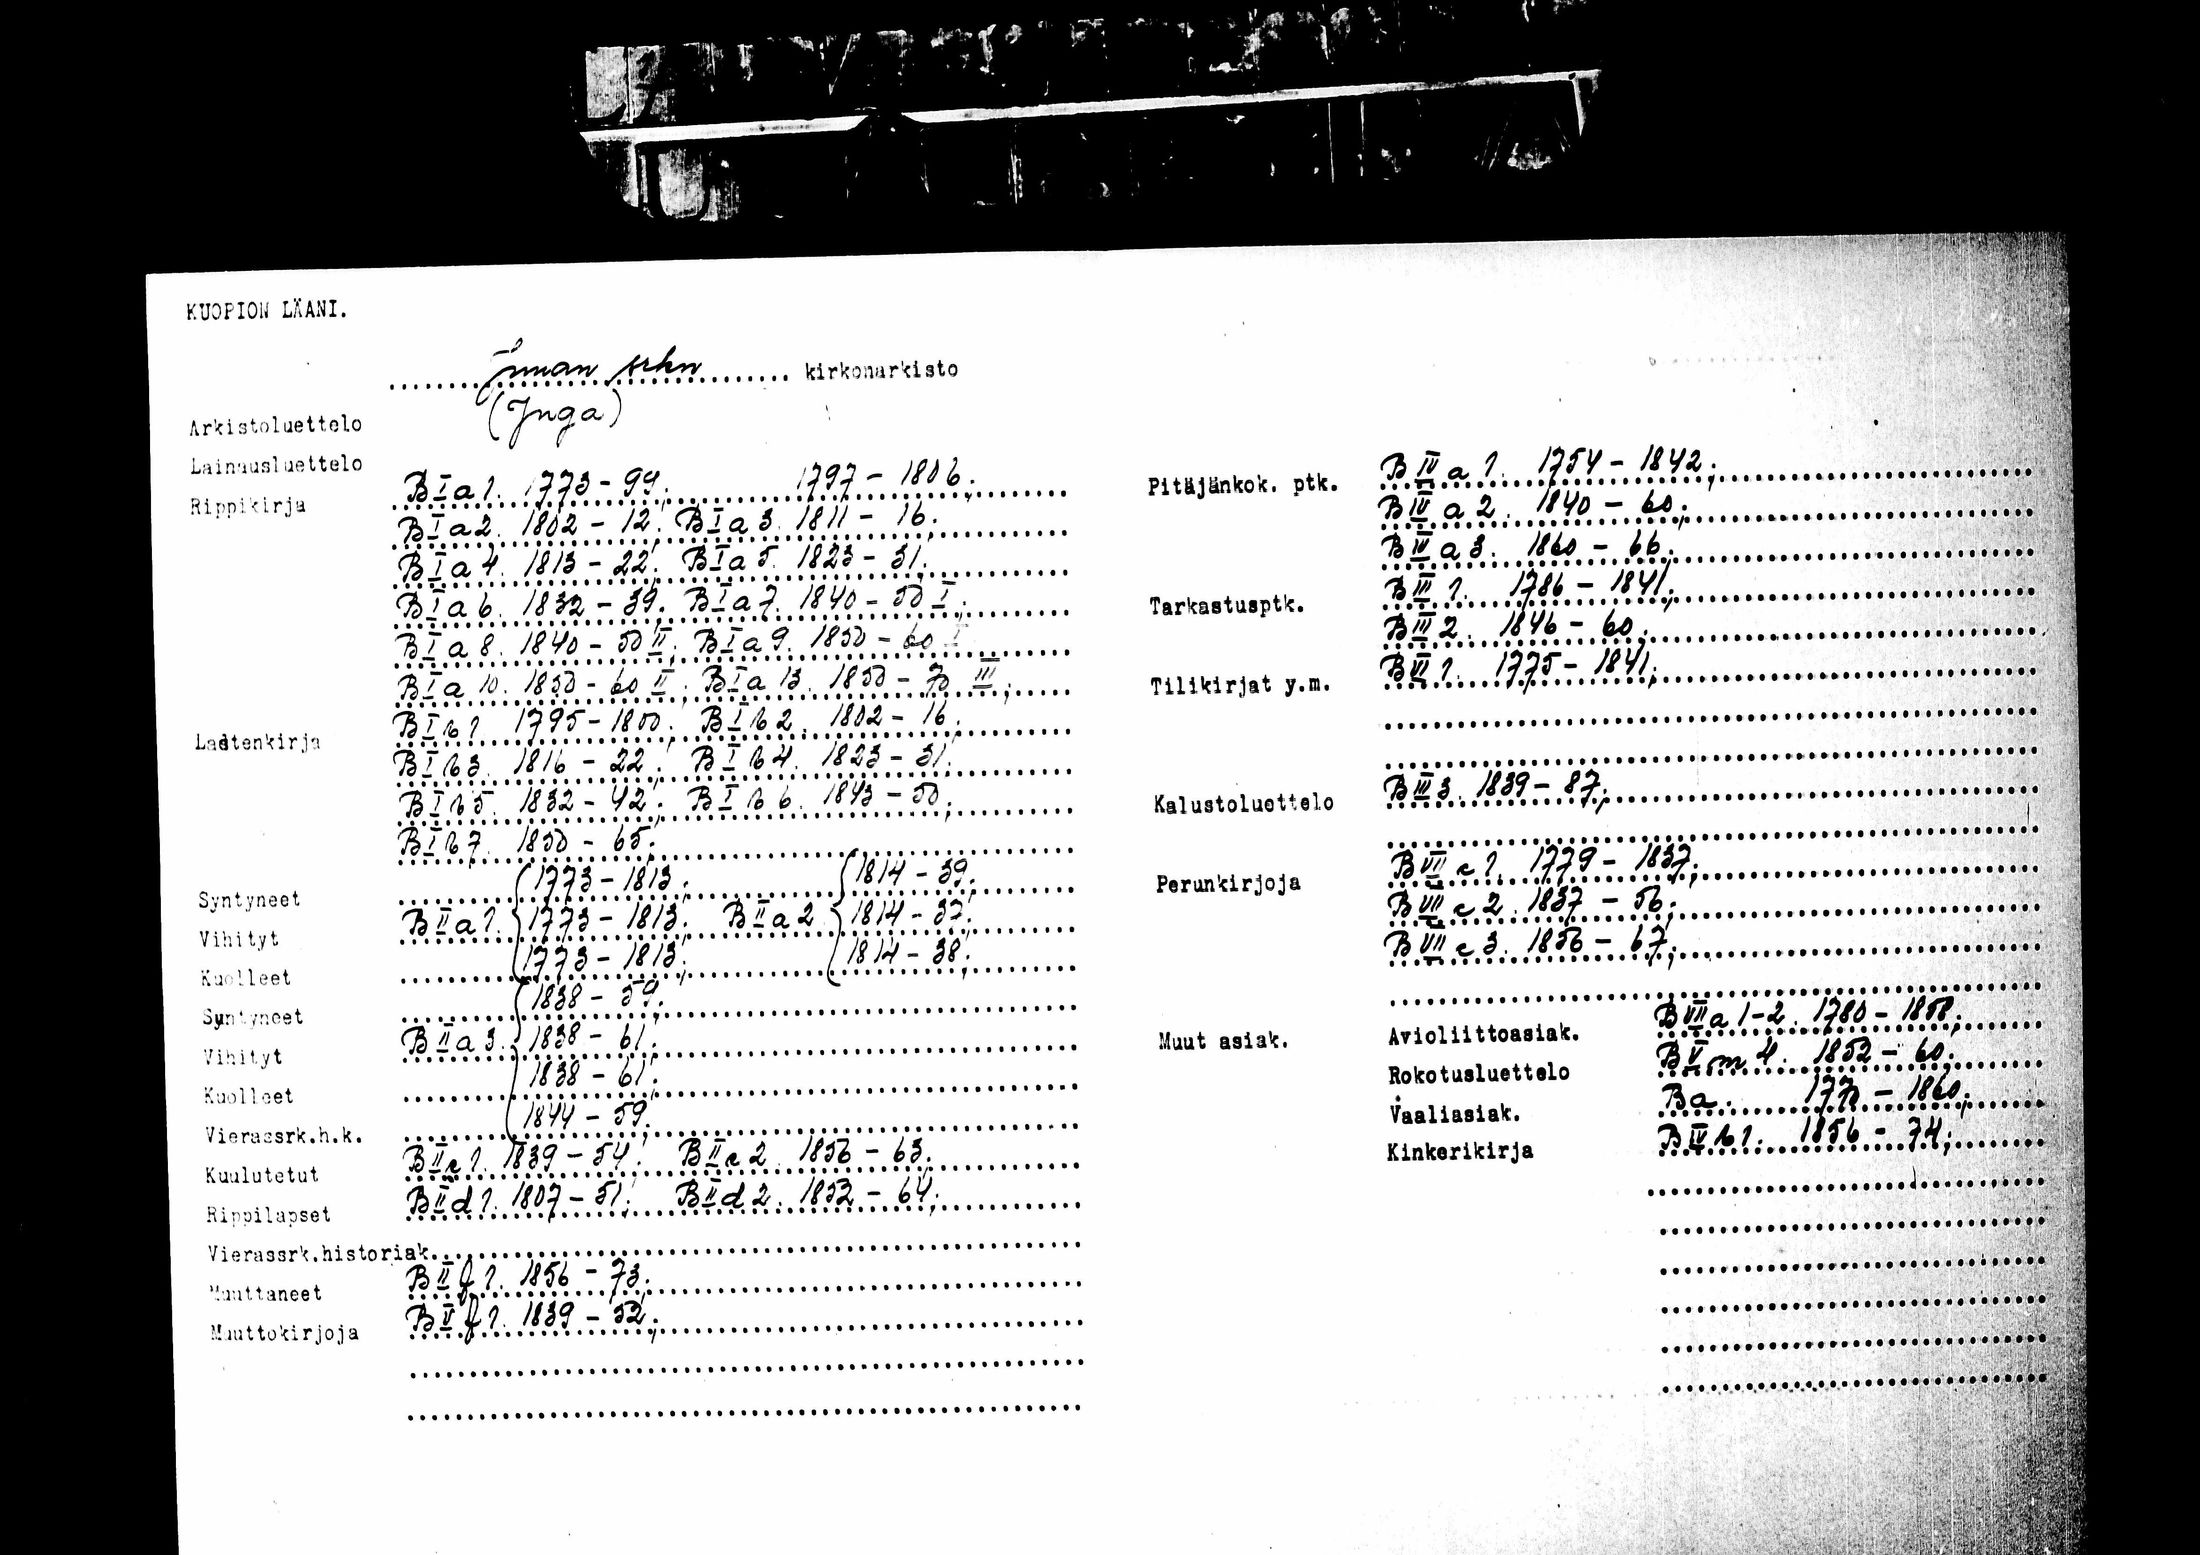 KUOPION LÄÄNI.
Innan srkn kirkonarkisto
(Inga)
Arkistoluettelo
Lainausluettelo
Rippikirja B I a 1. 1773 - 99; 1797 - 1806;
B I a 2. 1802 - 12; B I a 3. 1811 - 16;
B I a 4. 1813 - 22; B I a 5. 1823 - 31;
B I a 6. 1832 - 39; B I a 7. 1840 - 50 I;
B I a 8. 1840 - 50 II; B I a 9. 1850 - 60 I
B I a 10. 1850 - 60 II; B I a 13. 1850 - 70 III;
Lastenkirja B I b 1 1795 - 1800; B I b 2. 1802 - 16;
B I b 3. 1816 - 22; B I b 4. 1823 - 31;
B I b 5. 1832 - 42; B I b 6. 1843 - 50;
B I b 7. 1850 - 65;
Syntyneet 1773 - 1813; 1814 - 39;
Vihityt B II a 1. 1773 - 1813; B II a 2 1814 - 37;
Kuolleet 1773 - 1813; 1814 - 38;
Syntyneet 1838 - 59;
Vihityt B II a 3. 1838 - 61;
Kuolleet 1838 - 61;
Vierassrk.h.k. 1844 - 59;
Kuulutetut B II c 1. 1839 - 54; B II c 2. 1856 - 63;
Rippilapset B II d 1. 1807 - 51; B II d 2. 1852 - 64;
Vierassrk.historiak.
Muuttaneet B II f 1. 1856 - 73;
Muuttokirjoja B V f 1. 1839 - 52;
Pitäjänkok. ptk. B IV a 1. 1754 - 1842;
B IV a 2. 1840 - 60;
B IV a 3. 1860 - 66;
Tarkastusptk. B III 1. 1786 - 1841;
B III 2. 1846 - 60;
Tilikirjat y.m. B VI 1. 1775 - 1841;
Kalustoluettelo B III 3. 1839 - 87;
Perunkirjoja B VII c 1. 1779 - 1837;
B VII c 2. 1837 - 56;
B VII c 3. 1856 - 67;
Muut asiak. Avioliittoasiak. B VII a 1-2. 1780 - 1858;
Rokotusluettelo B V m 4. 1852 - 60;
Vaaliasiak. Ba. - 1860;
Kinkerikirja B IV b 1. 1856 - 74;